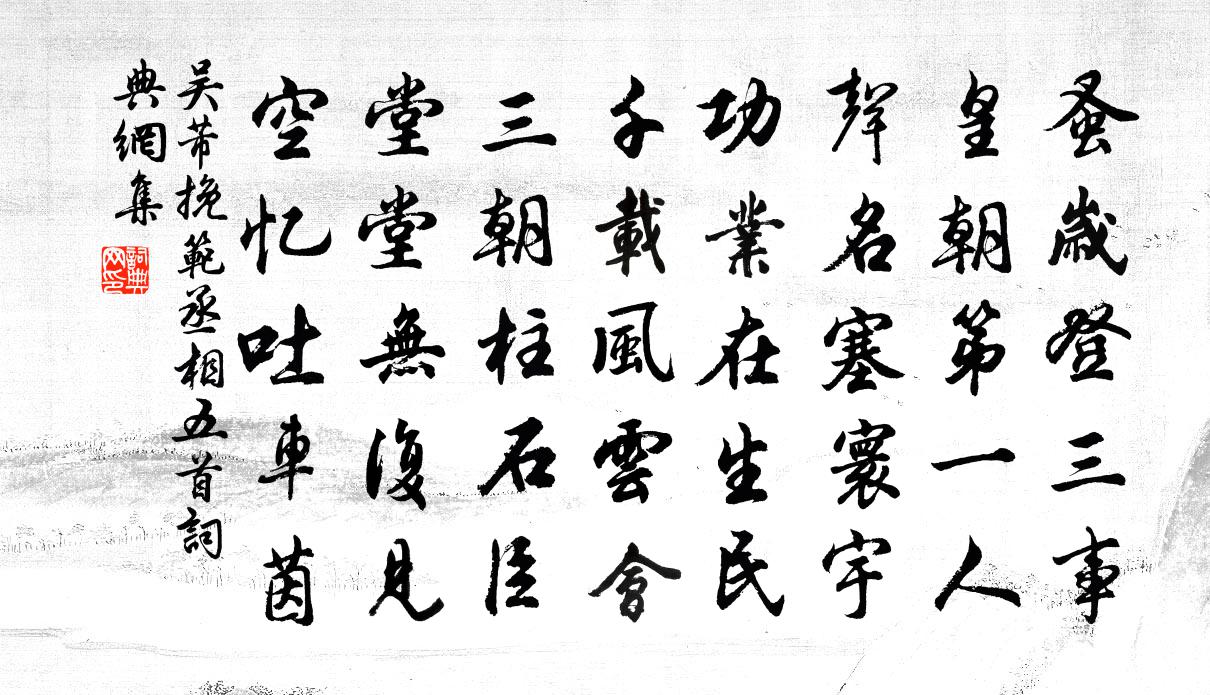 蚤歲登三事
皇朝第一人
聲名塞寰宇
功業在生民
千載風雲會
三朝柱石臣
堂堂無復見
空忆吐車茵
吴芾挽範丞相五首詞
典網集
詞典
网印